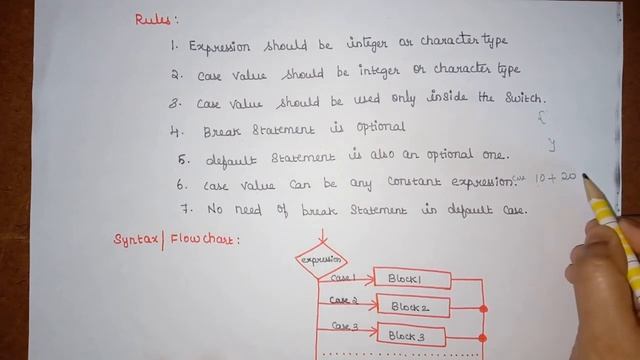 Rules:
1. Expression should be integer or character type
2. case value should be integer or character type
3. case value should be used only inside the switch.
{
4. Break statement is optional
}
5. default statement is also an optional one.
6. case value can be any constant expression. case 10+20
7. No need of break statement in default case.
Syntax/Flowchart:
expression
case 1 Block1
case 2 Block2
case 3 Block3